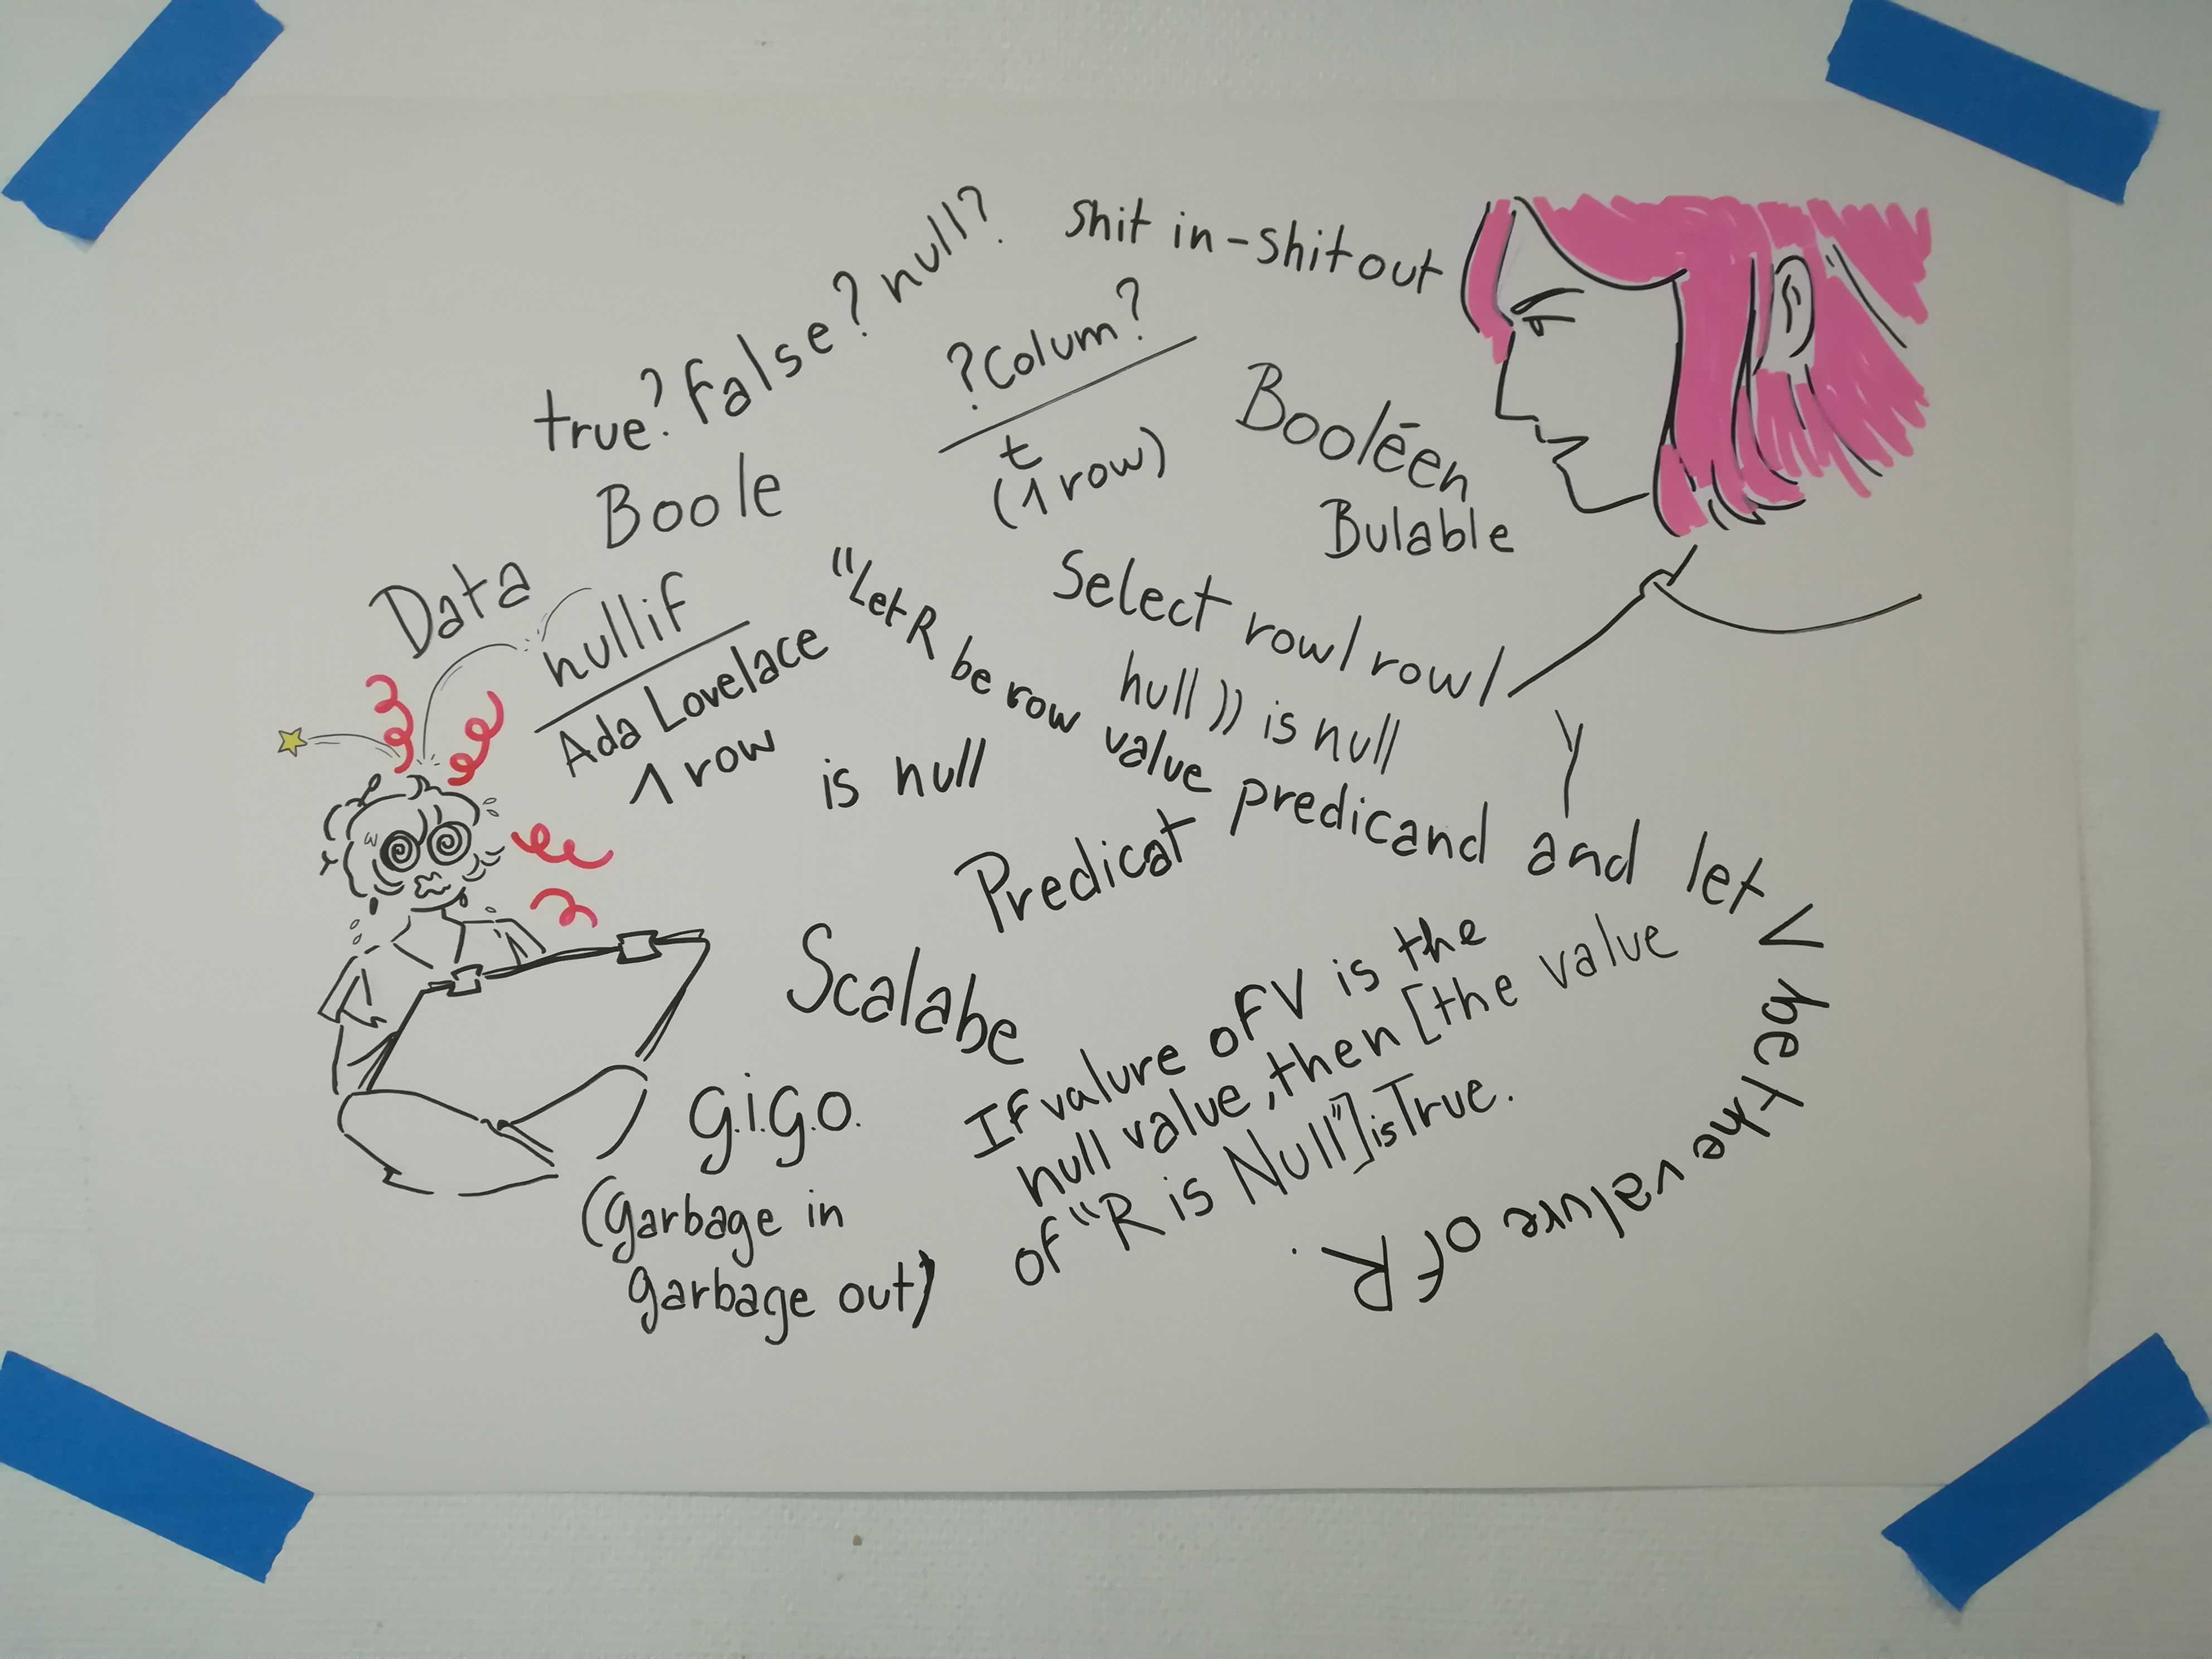 shit in-shit out
true? False? null?
?Colum?
t
(1 row)
Booléen
Bulable
Boole
Data
nullif
Ada Lovelace
1 row
is null
Select row(row(
null)) is null
"Let R be row value predicand and let V be the valure of R.
Y
Predicat
Scalabe
If valure of V is the
null value, then [the value
of "R is Null"] is True.
G.i.g.o.
(garbage in
garbage out)